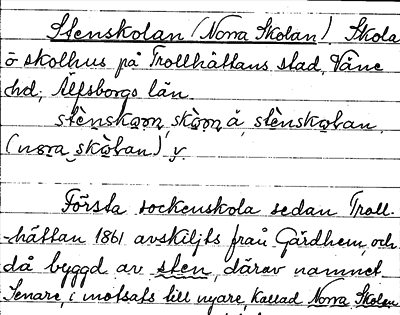 Stenskolan (Norra Skolan). Skola
o skolhus på Trollhättans stad, Väne
hd, Älfsborgs län.
(nɷra skɷ̀lan) y.
Första sockenskola sedan Troll-
hättan 1861 avskiljts från Gärdhem, och
då byggd av sten, därav namnet.
Senare, i motsats till nyare, kallad Norra Skolan